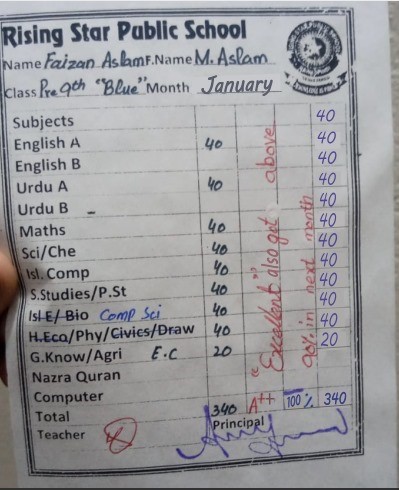 Rising Star Public School
Name Faizan Aslam F.Name M. Aslam
Class Pre 9th "Blue" Month January
Subjects 40
English A 40 40
English B 40
Urdu A 40 40
Urdu B - 40
Maths 40 40
Sci/Che 40 40
Isl. Comp 40 40
S.Studies/P.St 40 40
Isl E/Bio Comp Sci 40 40
H.Eco/Phy/Civics/Draw 40 40
G.Know/Agri E.C 20 20
Nazra Quran
Computer
Total 340 A++ 100% 340
Teacher Principal
"Excellent" also got above
90% in next month